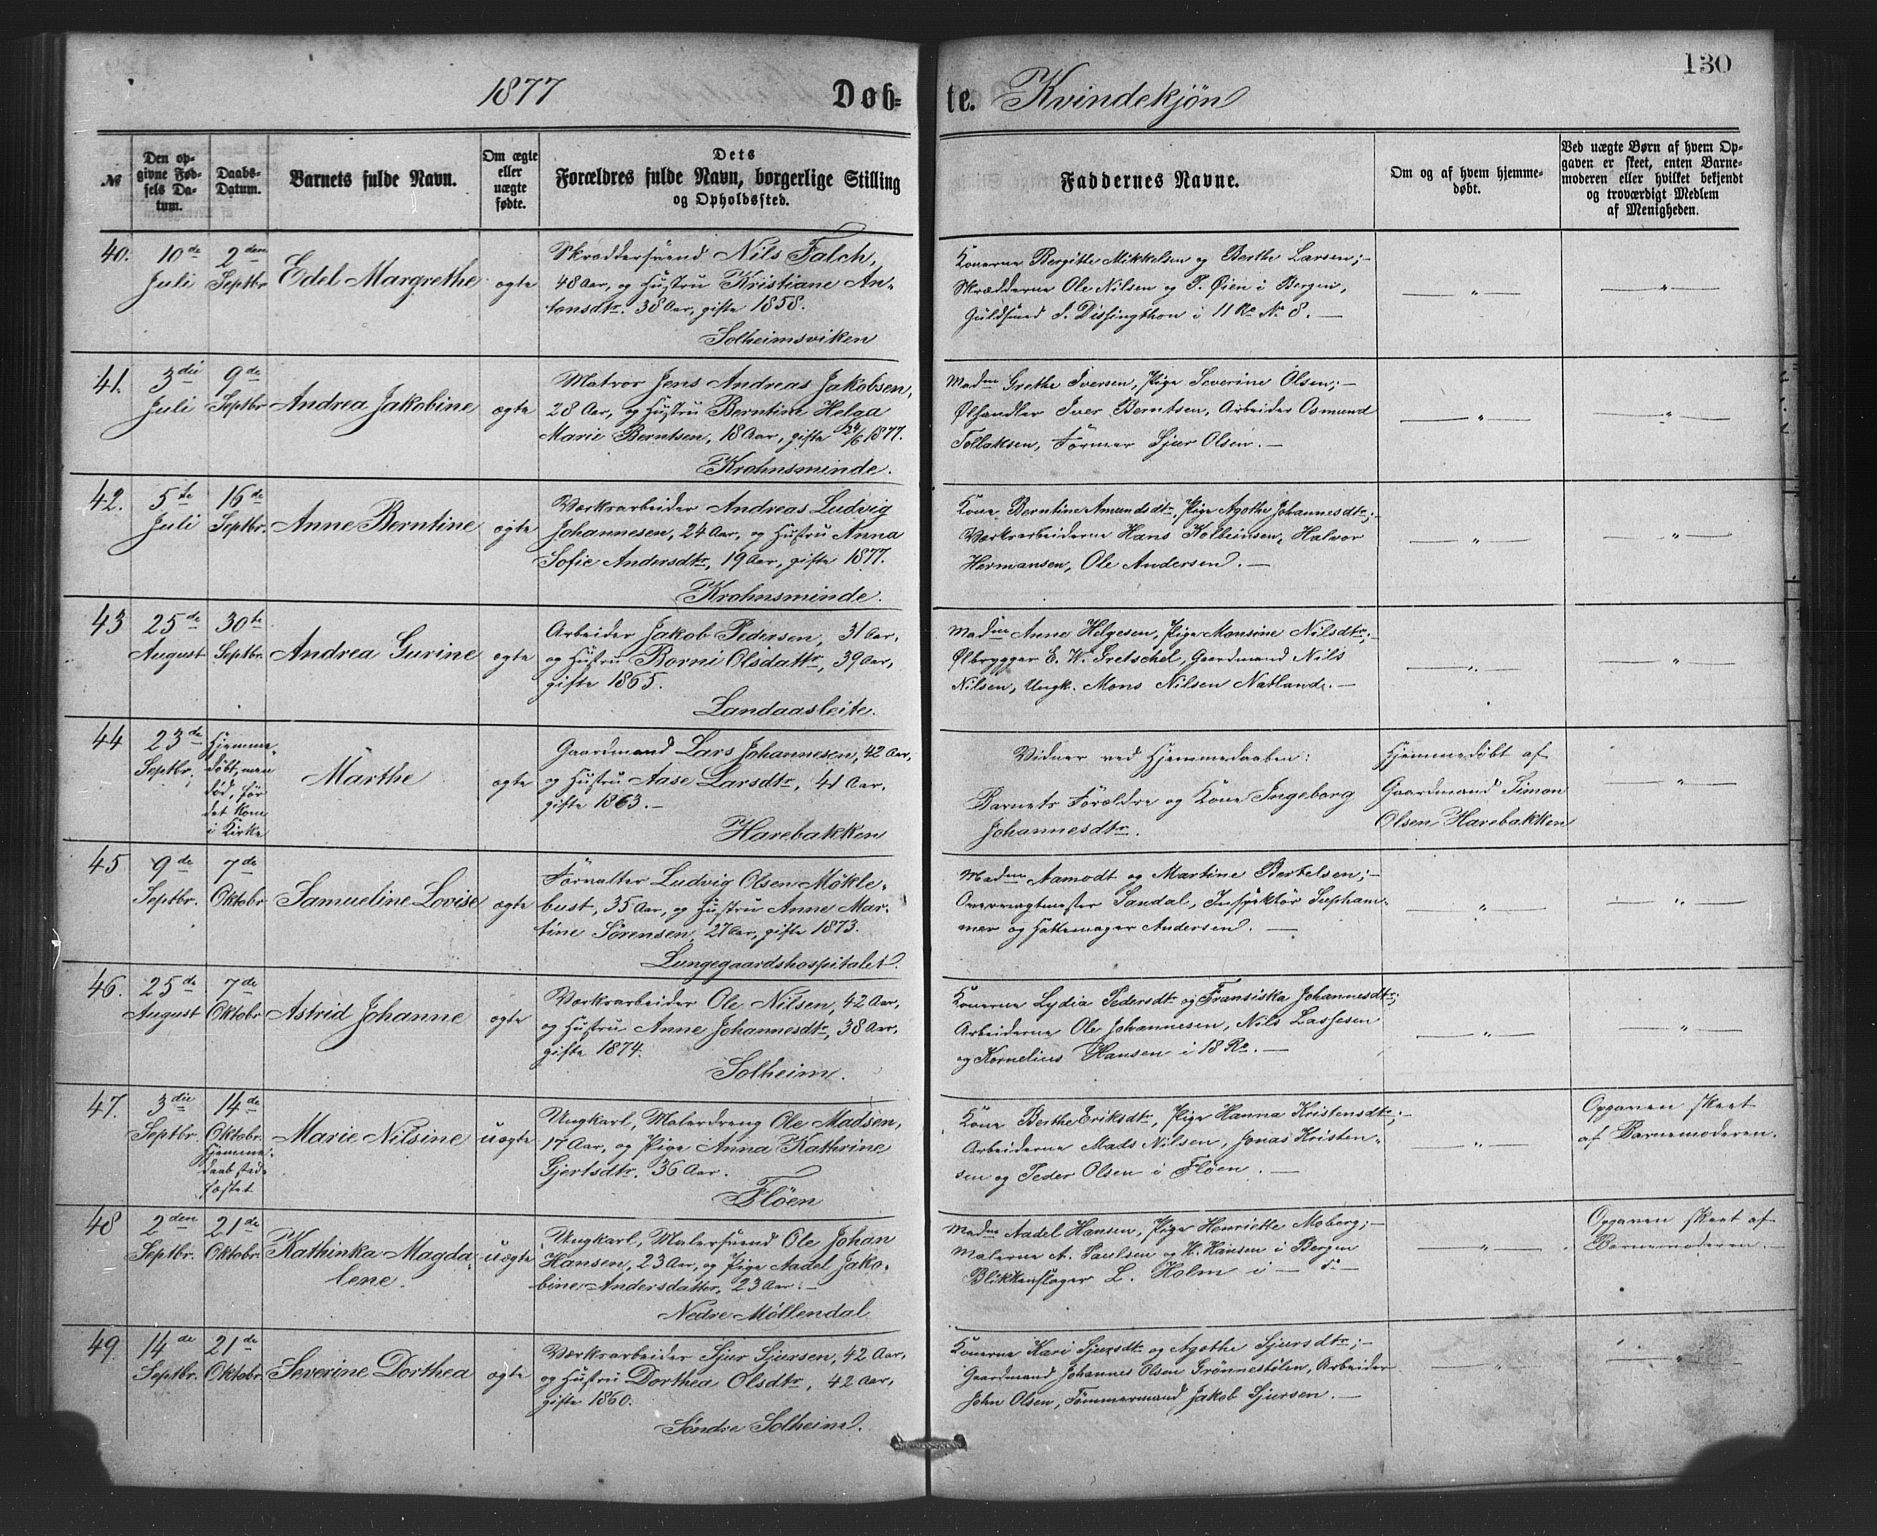 130
1877 Døb- te. Kvindekjøn
№
Den op-
givne Fød-
sels Da-
tum.
Daabs-
Datum.
Barnets fulde Navn.
Om ægte
eller
uægte
fødte.
Dets
Forældres fulde Navn, borgerlige Stilling
og Opholdssted.
Faddernes Navne.
Om og af hvem hjemme-
døbt.
Ved uægte Børn af hvem Op-
gaven er skeet, enten Barne-
moderen eller hvilket bekjendt
og troværdigt Medlem
af Menigheden.
40.
10de
Juli
2den
Septbr
Edel Margrethe
ægte
Skræddersvend Nils Falch,
48 Aar, og Hustru Kristiane An-
tonsdtr. 38 Aar, gifte 1858.
Solheimsviken
Konerne Bergitte Mikkelsen og Berthe Larsen;-
Skrædderne Ole Nilsen og P. Øien i Bergen,
Guldsmed J. Dissingthon i 11 Ro № 8. —
— " —
— " —
41.
3die
Juli
9de
Septbr
Andrea Jakobine
ægte
Matros Jens Andreas Jakobsen,
28 Aar, og Hustru Berntine Helga
Marie Berntsen, 18 Aar, gifte 24/6 1877.
Krohnsminde.
Madme Grethe Iversen, Pige Severine Olsen;-
Ølhandler Iver Berntsen, Arbeider Osmund
Tollaksen, Former Sjur Olsen. —
— " —
— " —
42.
5te
Juli
16de
Septbr.
Anne Berntine
ægte
Værksarbeider Andreas Ludvig
Johannesen, 24 Aar, og Hustru Anna
Sofie Andersdtr, 19 Aar, gifte 1877.
Krohnsminde.
Kone Berntine Amundsdtr, Pige Agathe Johannesdtr;-
Værksarbeiderne Hans Kolbeinsen, Halvor
Hermansen, Ole Andersen. —
— " —
— " —
43
25de
August
30te
Septbr.
Andrea Gurine
ægte
Arbeider Jakob Pedersen, 31 Aar,
og Hustru Borni Olsdattr, 39 Aar,
gifte 1865.
Landaasleite.
Madme Anne Helgesen, Pige Monsine Nilsdtr;-
Ølbrygger E. W. Gretschel, Gaardmand Nils
Nilsen, Ungk. Mons Nilsen Natland. —
— " —
— " —
44
23de
Septbr.
Hjemme-
døbt, men
død, før
det kom
i Kirke
Marthe
ægte
Gaardmand Lars Johannesen, 42 Aar,
og Hustru Aase Larsdtr, 41 Aar,
gifte 1863. —
Harebakken
Vidner ved Hjemmedaaben:
Barnets Forældre og Kone Ingeborg
Johannesdtr.
Hjemmedøbt af
Gaardmand Simon
Olsen Harebakken
— " —
45
9de
Septbr.
7de
Oktobr
Samueline Lovise
ægte
Forvalter Ludvig Olsen Møkle-
bust, 35 Aar, og Hustru Anne Mar-
tine Sørensen, 27 Aar, gifte 1873.
Lungegaardshospitalet.
Madme Aamodt og Martine Bertelsen;-
Overvagtmester Sandal, Inspektør Supham-
mer og Hattemager Andersen. —
— " —
— " —
46.
25de
August
7de
Oktobr
Astrid Johanne
ægte
Værksarbeider Ole Nilsen, 42 Aar,
og Hustru Anne Johannesdtr, 38 Aar,
gifte 1874.
Solheim.
Konerne Lydia Pedersdtr og Fransiska Johannesdtr;
Arbeiderne Ole Johannesen, Nils Lassesen
og Kornelius Hansen i 18 Ro. —
— " —
— " —
47.
3die
Septbr.
14de
Oktobr.
Hjemme-
daab stad-
fæstet
Marie Nilsine
uægte
Ungkarl, Malerdreng Ole Madsen,
17 Aar, og Pige Anna Kathrine
Gjertsdtr. 36 Aar.
Fløen
Kone Berthe Eriksdtr, Pige Hanna Kristensdtr;-
Arbeiderne Mads Nilsen, Jonas Kristen-
sen og Peder Olsen i Fløen. —
— " —
Opgaven skeet
af Barnemoderen.
48
2den
Septbr.
21de
Oktobr.
Kathinka Magda-
lene.
uægte
Ungkarl, Malersvend Ole Johan
Hansen, 23 Aar, og Pige Aadel Jako-
bine Andersdatter, 23 Aar. —
Nedre Møllendal
Madme Aadel Hansen, Pige Henriette Moberg;-
Malerne A. Paulsen og H. Hansen i Bergen
Blikkenslager L. Holm i — d° —
— " —
Opgaven skeet af
Barnemoderen. —
49.
14de
Septbr.
21de
Oktobr.
Severine Dorthea
ægte
Værksarbeider Sjur Sjursen, 42 Aar,
og Hustru Dorthea Olsdtr, 42 Aar,
gifte 1860.
Søndre Solheim.
Konerne Kari Sjursdtr og Agathe Sjursdtr;-
Gaardmand Johannes Olsen Grønnestølen, Arbeider
John Olsen, Tømmermand Jakob Sjursen. —
— " —
— " —